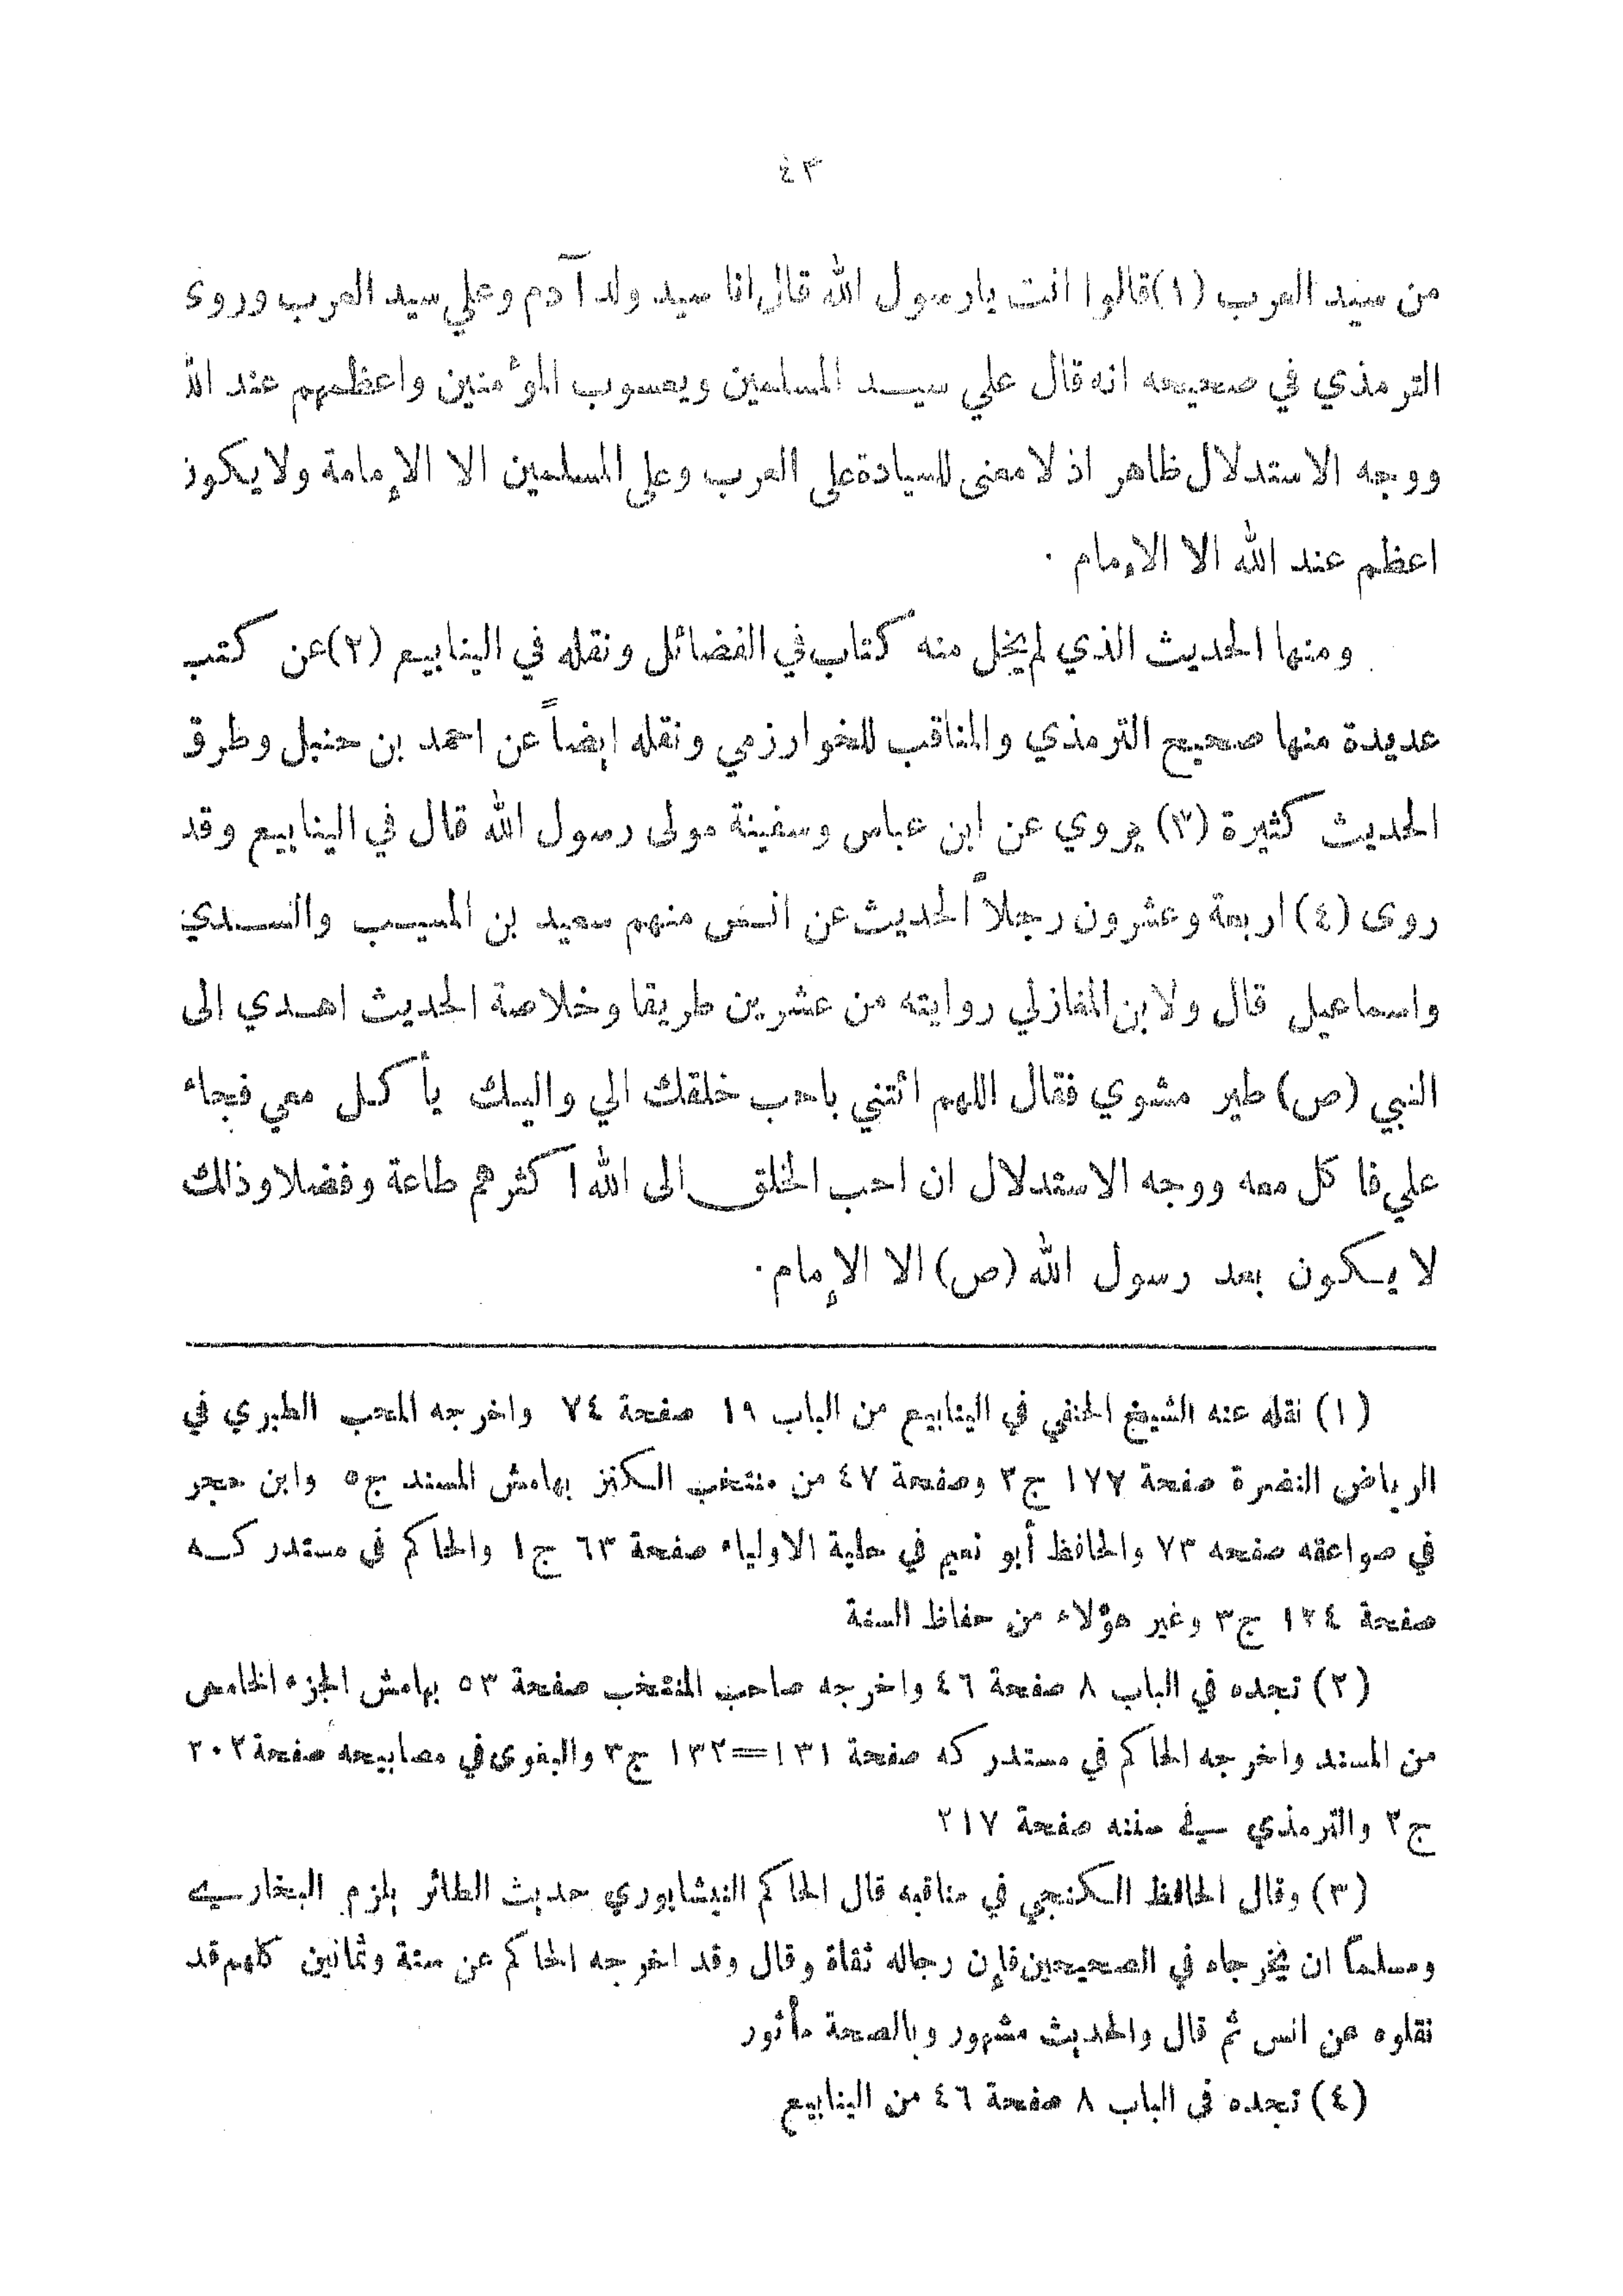 ٤٣
من سيد العرب (١) قالوا انت يارسول الله قال انا سيد ولد آدم وعلي سيد العرب وروى
الترمذي في صحيحه انه قال علي سيد المسلمين ويعسوب المؤمنين واعظمهم عند الله
ووجه الاستدلال ظاهر اذ لا معنى للسيادة على العرب وعلى المسلمين الا الإمامة ولا يكون
اعظم عند الله الا الإمام .
ومنها الحديث الذي لم يخل منه كتاب في الفضائل ونقله في الينابيع (٢) عن كتب
عديدة منها صحيح الترمذي والمناقب للخوارزمي ونقله ايضاً عن احمد بن حنبل وطرق
الحديث كثيرة (٣) يروي عن ابن عباس وسفينة مولى رسول الله قال في الينابيع وقد
روى (٤) اربعة وعشرون رجلاً الحديث عن انس منهم سعيد بن المسيب والسدي
واسماعيل قال ولابن المغازلي روايته من عشرين طريقا وخلاصة الحديث اهدي الى
النبي (ص) طير مشوي فقال اللهم ائتني باحب خلقك الي واليك يأكل معي فجاء
علي فاكل معه ووجه الاستدلال ان احب الخلق الى الله اكثرهم طاعة وفضلا وذلك
لا يكون بعد رسول الله (ص) الا الإمام.
(١) نقله عنه الشيخ الحنفي في الينابيع من الباب ١٩ صفحة ٧٤ واخرجه المحب الطبري في
الرياض النضرة صفحة ١٧٧ ج٢ وصفحة ٤٧ من منتخب الكنز بهامش المسند ج٥ وابن حجر
في صواعقه صفحه ٧٣ والحافظ أبو نعيم في حلية الاولياء صفحة ٦٣ ج١ والحاكم في مستدركه
صفحة ١٢٤ ج٣ وغير هؤلاء من حفاظ السنة
(٢) تجده في الباب ٨ صفحة ٤٦ واخرجه صاحب المنتخب صفحة ٥٣ بهامش الجزء الخامس
من المسند واخرجه الحاكم في مستدركه صفحة ١٣١=١٣٢ ج٣ والبغوى في مصابيحه صفحة ٢٠٢
ج٢ والترمذي في سننه صفحة ٢١٧
(٣) وقال الحافظ الكنجي في مناقبه قال الحاكم النيشابوري حديث الطائر يلزم البخاري
ومسلماً ان يخرجاه في الصحيحين فإن رجاله ثقاة وقال وقد اخرجه الحاكم عن ستة وثمانين كلهم قد
نقلوه عن انس ثم قال والحديث مشهور وبالصحة مأثور
(٤) تجده في الباب ٨ صفحة ٤٦ من الينابيع